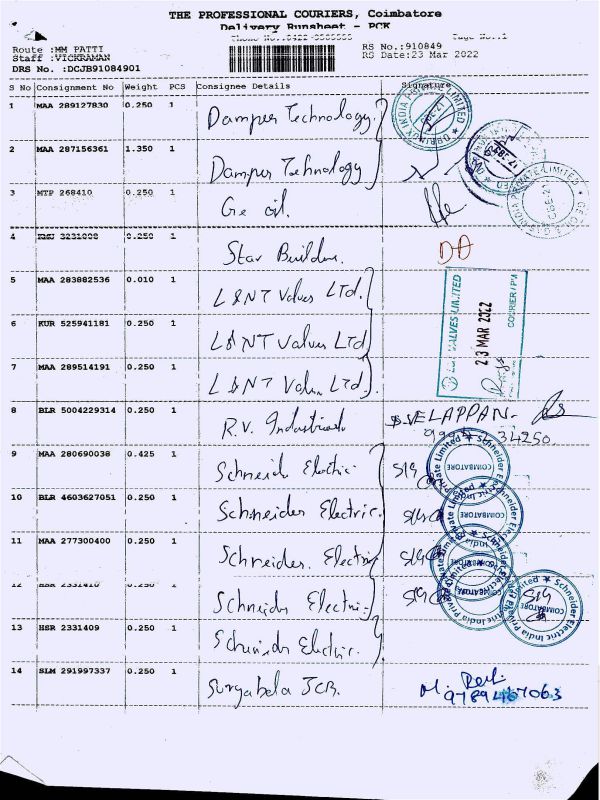 THE PROFESSIONAL COURIERS, Coimbatore
Delivery Runsheet - PCK
Route :MM PATTI
RS No.:910849
Staff :VICKRAMAN
RS Date:23 Mar 2022
DRS No. :DCJB91084901
S No Consignment No Weight PCS Consignee Details Signature
1 MAA 289127830 0.250 1 Damper Technology
2 MAA 287156361 1.350 1 Damper Technology
3 MTP 268410 0.250 1 Ge oil.
4 0.250 1 Star Builders.
5 MAA 283882536 0.010 1 L&NT Valves LTd.
6 KUR 525941181 0.250 1 L&NT Valves LTd
7 MAA 289514191 0.250 1 L&NT Valves LTd.
VALVES LIMITED
23 MAR 2022
COURIER / PM
8 BLR 5004229314 0.250 1 R.V. Industrial S.VELAPPAN.
34250
9 MAA 280690038 0.425 1 Schneider Electric
10 BLR 4603627051 0.250 1 Schneider Electric.
11 MAA 277300400 0.250 1 Schneider. Electric
12 1 Schneider Electric
13 HSR 2331409 0.250 1 Schneider Electric.
Schneider Electric India Private Limited
COIMBATORE
14 SLM 291997337 0.250 1 Suryabala JCB.